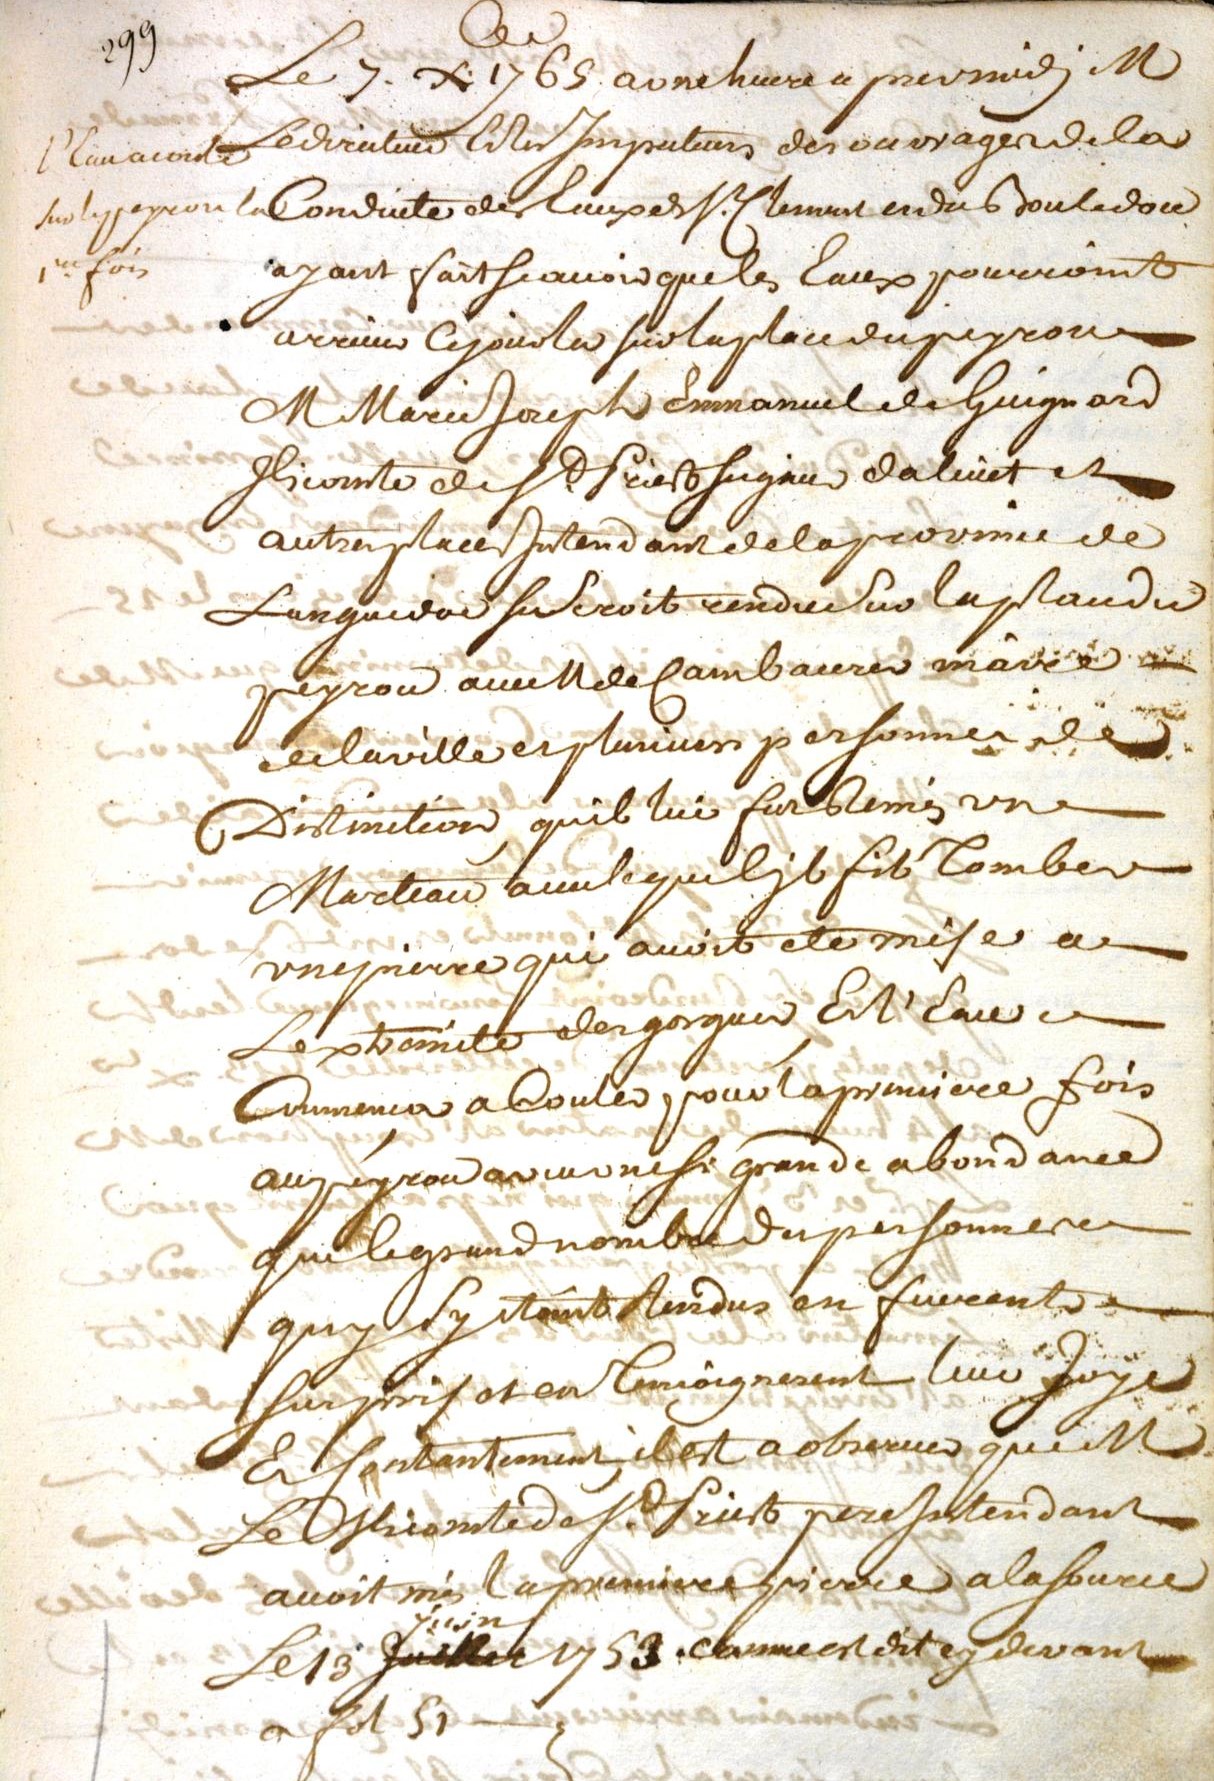 299
Le 7. Xbre 1765 a une heure apres midj M
Le directeur & les Inspecteurs des ouvrages de la
Conduite des Eaux de St. Clement
ayant fait scavoir que les Eaux pourroint
arriver ce jour la sur la place du peyrou
M Marie Joseph Emmanuel de Guignard
Vicomte de St. Priest seigneur dalivet et
autres places Intendant de la province de
Languedoc se seroit rendu sur la place du
peyrou avec M de Cambaceres maire
de la ville et plusieurs personnes de
Distinction, quil lui fut remis un
Marteau avec lequel jl fit tomber
une pierre qui avoit ete mise a
Lextremite des gorgues Et l'Eau
Commença a Couler pour la premiere fois
au peyrou avec une si grande abondance
que le grand nombre des personnes
quy sy etoint rendus en furent
surpris et en temoignerent leur joye
Et contantement, il est a observer que M
Le Vicomte de St. Priest pere Intendant
avoit mis la premiere pierre a la source
Le 13 juin 1753. comme est dit cy devant
a fol 51
l'Eau a coule
sur le peyrou la
1re fois